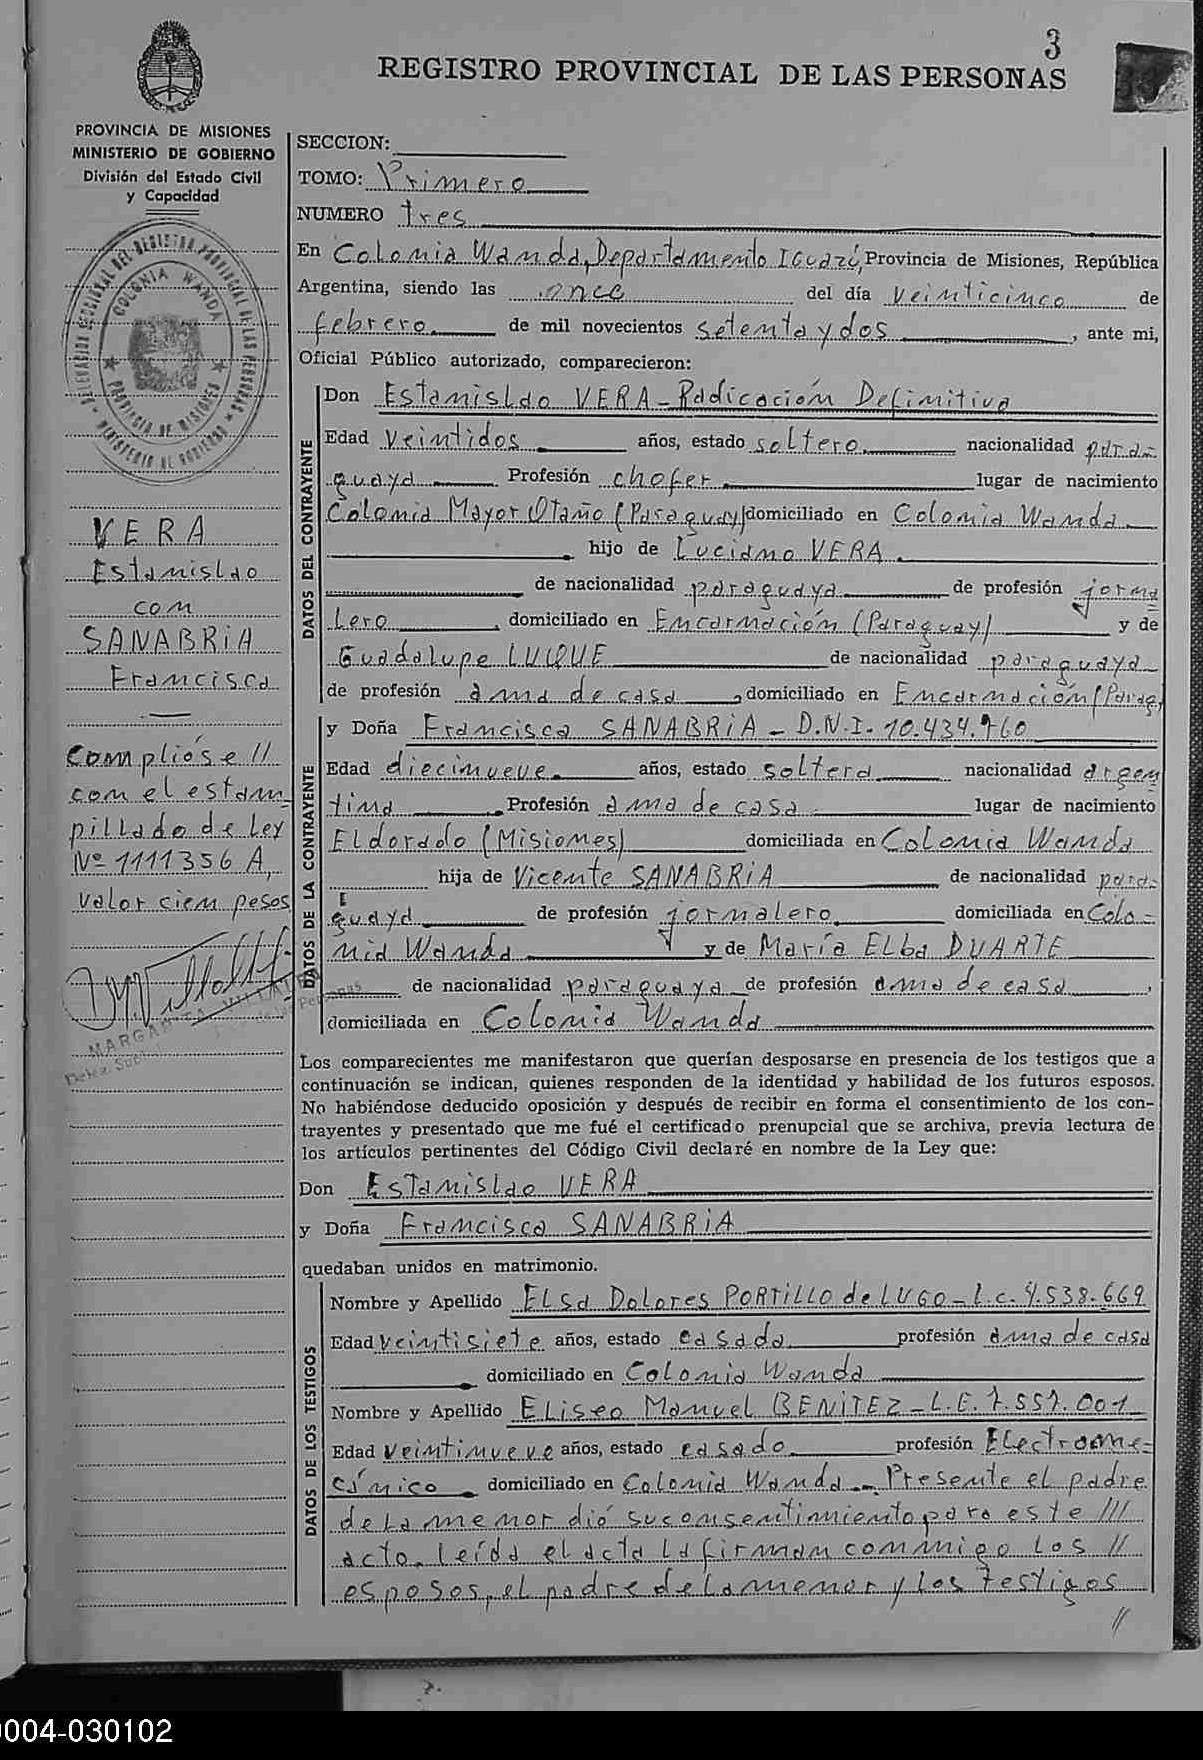 3
REGISTRO PROVINCIAL DE LAS PERSONAS
PROVINCIA DE MISIONES
MINISTERIO DE GOBIERNO
División del Estado Civil
y Capacidad
COLONIA WANDA
PROVINCIA DE MISIONES
VERA
Estanislao
con
SANABRIA
Francisca
Complióse //
con el estam
pillado de Ley
Nº 1111356 A,
valor cien pesos
MARGARITA
SECCION:
TOMO: Primero
NUMERO tres
En Colonia Wanda, Departamento Iguazú, Provincia de Misiones, República
Argentina, siendo las once del día veinticinco de
febrero de mil novecientos setenta y dos, ante mi,
Oficial Público autorizado, comparecieron:
DATOS DEL CONTRAYENTE
Don Estanislao VERA - Radicación Definitiva
Edad veintidos años, estado soltero nacionalidad para-
guaya Profesión chofer lugar de nacimiento
Colonia Mayor Otaño (Paraguay) domiciliado en Colonia Wanda
hijo de Luciano VERA.
de nacionalidad paraguaya de profesión jorna
lero, domiciliado en Encarnación (Paraguay) y de
Guadalupe LUQUE de nacionalidad paraguaya
de profesión ama de casa, domiciliado en Encarnación (Parag.
DATOS DE LA CONTRAYENTE
y Doña Francisca SANABRIA - D.N.I. 10.434.960
Edad diecinueve años, estado soltera nacionalidad argen
tina Profesión ama de casa lugar de nacimiento
Eldorado (Misiones) domiciliada en Colonia Wanda
hija de Vicente SANABRIA de nacionalidad para-
guaya de profesión jornalero domiciliada en Colo-
nia Wanda y de María Elba DUARTE
de nacionalidad paraguaya de profesión ama de casa,
domiciliada en Colonia Wanda
Los comparecientes me manifestaron que querían desposarse en presencia de los testigos que a
continuación se indican, quienes responden de la identidad y habilidad de los futuros esposos.
No habiéndose deducido oposición y después de recibir en forma el consentimiento de los con-
trayentes y presentado que me fué el certificado prenupcial que se archiva, previa lectura de
los artículos pertinentes del Código Civil declaré en nombre de la Ley que:
Don Estanislao VERA
y Doña Francisca SANABRIA
quedaban unidos en matrimonio.
DATOS DE LOS TESTIGOS
Nombre y Apellido Elsa Dolores PORTILLO de LUGO - L.C. 4.538.669
Edad veintisiete años, estado casada profesión ama de casa
domiciliado en Colonia Wanda
Nombre y Apellido Eliseo Manuel BENITEZ - L.E. 7.557.001
Edad veintinueve años, estado casado profesión Electrome-
cánico. domiciliado en Colonia Wanda. Presente el padre
de la menor dió su consentimiento para este ///
acto. Leída el acta la firman conmigo los //
esposos, el padre de la menor y los testigos
//
0004-030102